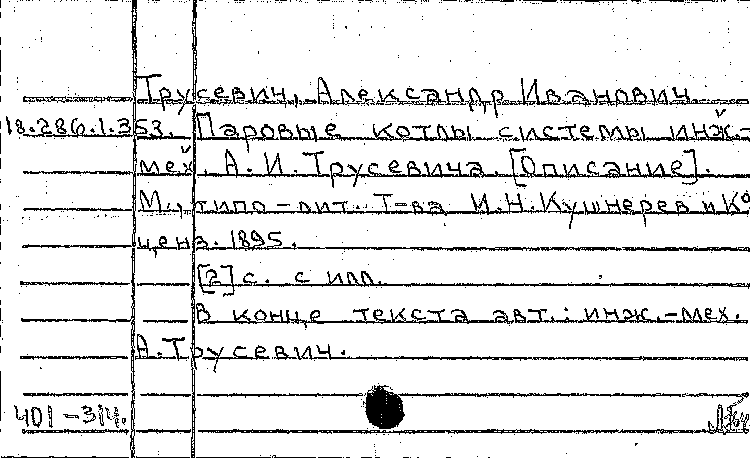 Трусевич, Александр Иванович.
18.286.1.353. Паровые котлы системы инж.-
мех. А. И. Трусевича. [Описание].
М., типо-лит. Т-ва И.Н.Кушнерев и К°
ценз. 1895.
[2] с. с илл.
В конце текста авт.: инж.-мех.
А.Трусевич.
401-314.